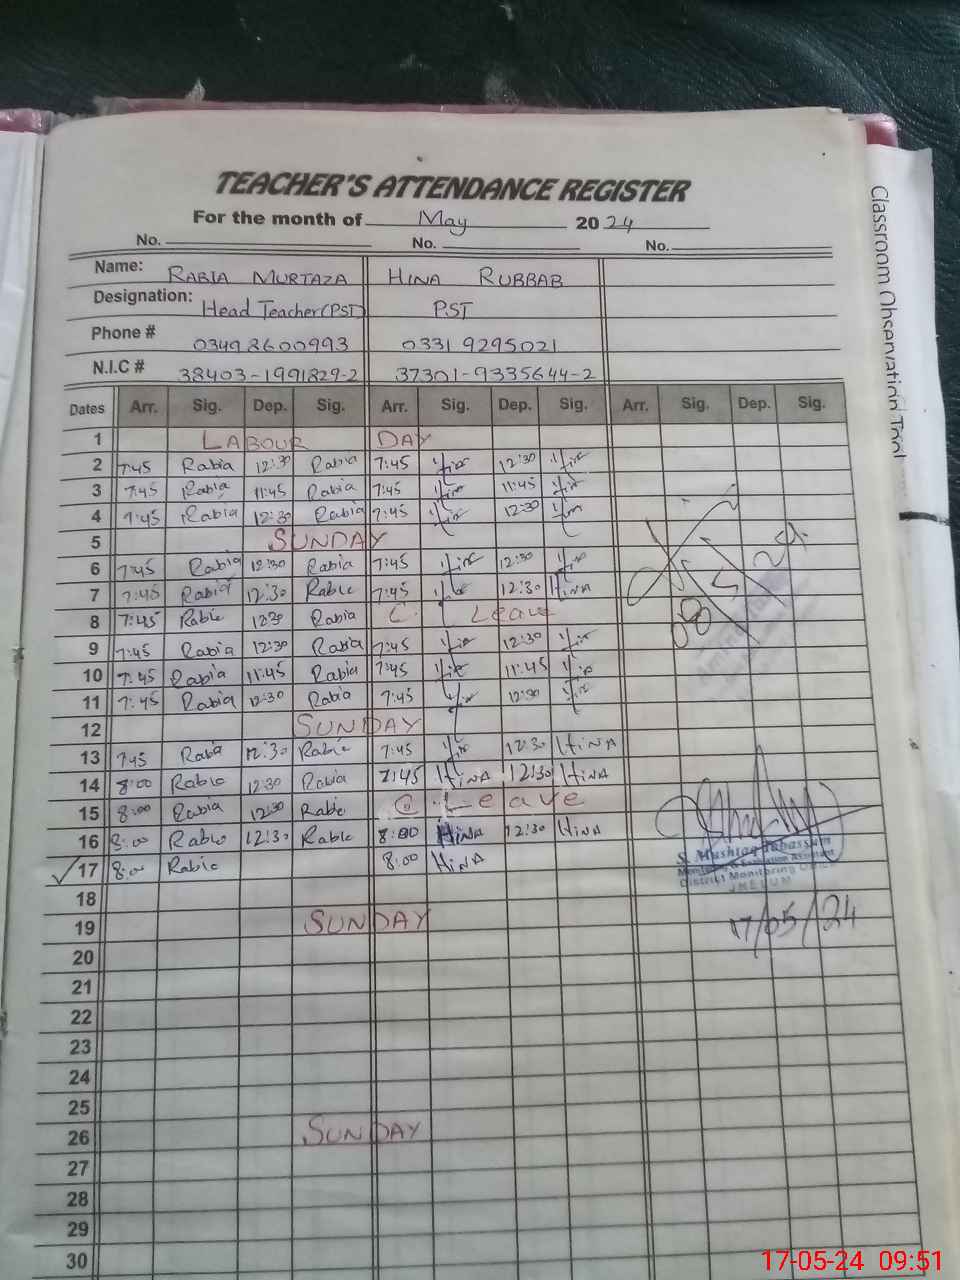 TEACHER'S ATTENDANCE REGISTER
For the month of May 2024
No. No. No.
Name: RABIA MURTAZA HINA RUBBAB
Designation: Head Teacher(PST) PST
Phone # 03492600993 0331 9295021
N.I.C # 38403-1991829-2 37301-9335644-2
Dates Arr. Sig. Dep. Sig. Arr. Sig. Dep. Sig. Arr. Sig. Dep. Sig.
1 LABOUR DAY
2 7:45 Rabia 12:30 Rabia 7:45 12:30
3 7:45 Rabia 11:45 Rabia 7:45 11:45
4 7:45 Rabia 12:30 Rabia 7:45 12:30
5 SUNDAY
6 7:45 Rabia 12:30 Rabia 7:45 12:30
7 7:45 Rabia 12:30 Rabia 7:45 12:30 HINA
8 7:45 Rabia 12:30 Rabia C. Leave
9 7:45 Rabia 12:30 Rabia 7:45 12:30
10 7:45 Rabia 11:45 Rabia 7:45 11:45
11 7:45 Rabia 12:30 Rabia 7:45 12:30
12 SUNDAY
13 7:45 Rabia 12:30 Rabia 7:45 12:30 HINA
14 8:00 Rabia 12:30 Rabia 7:45 HINA 12:30 HINA
15 8:00 Rabia 12:30 Rabia C. Leave
16 8:00 Rabia 12:30 Rabia 8:00 HINA 12:30 HINA
17 8:00 Rabia 8:00 HINA
S. Mushtaq Tabassum
Monitoring & Evaluation Assistant
District Monitoring Office
JHELUM
18
19 SUNDAY
17/05/24
20
21
22
23
24
25
26 SUNDAY
27
28
29
30
Classroom Observation Tool
17-05-24 09:51